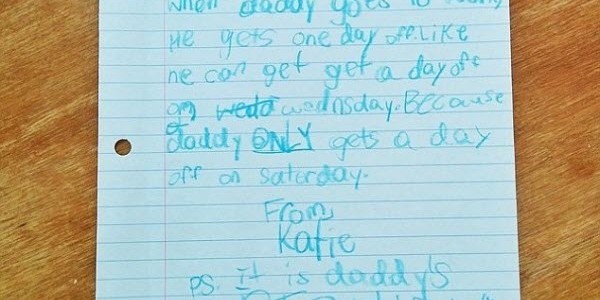 when daddy goes to
He gets one day off. Like
he can get get a day off
on wednsday. Because
daddy ONLY gets a day
off on saturday.
From
Katie
PS. It is daddy's